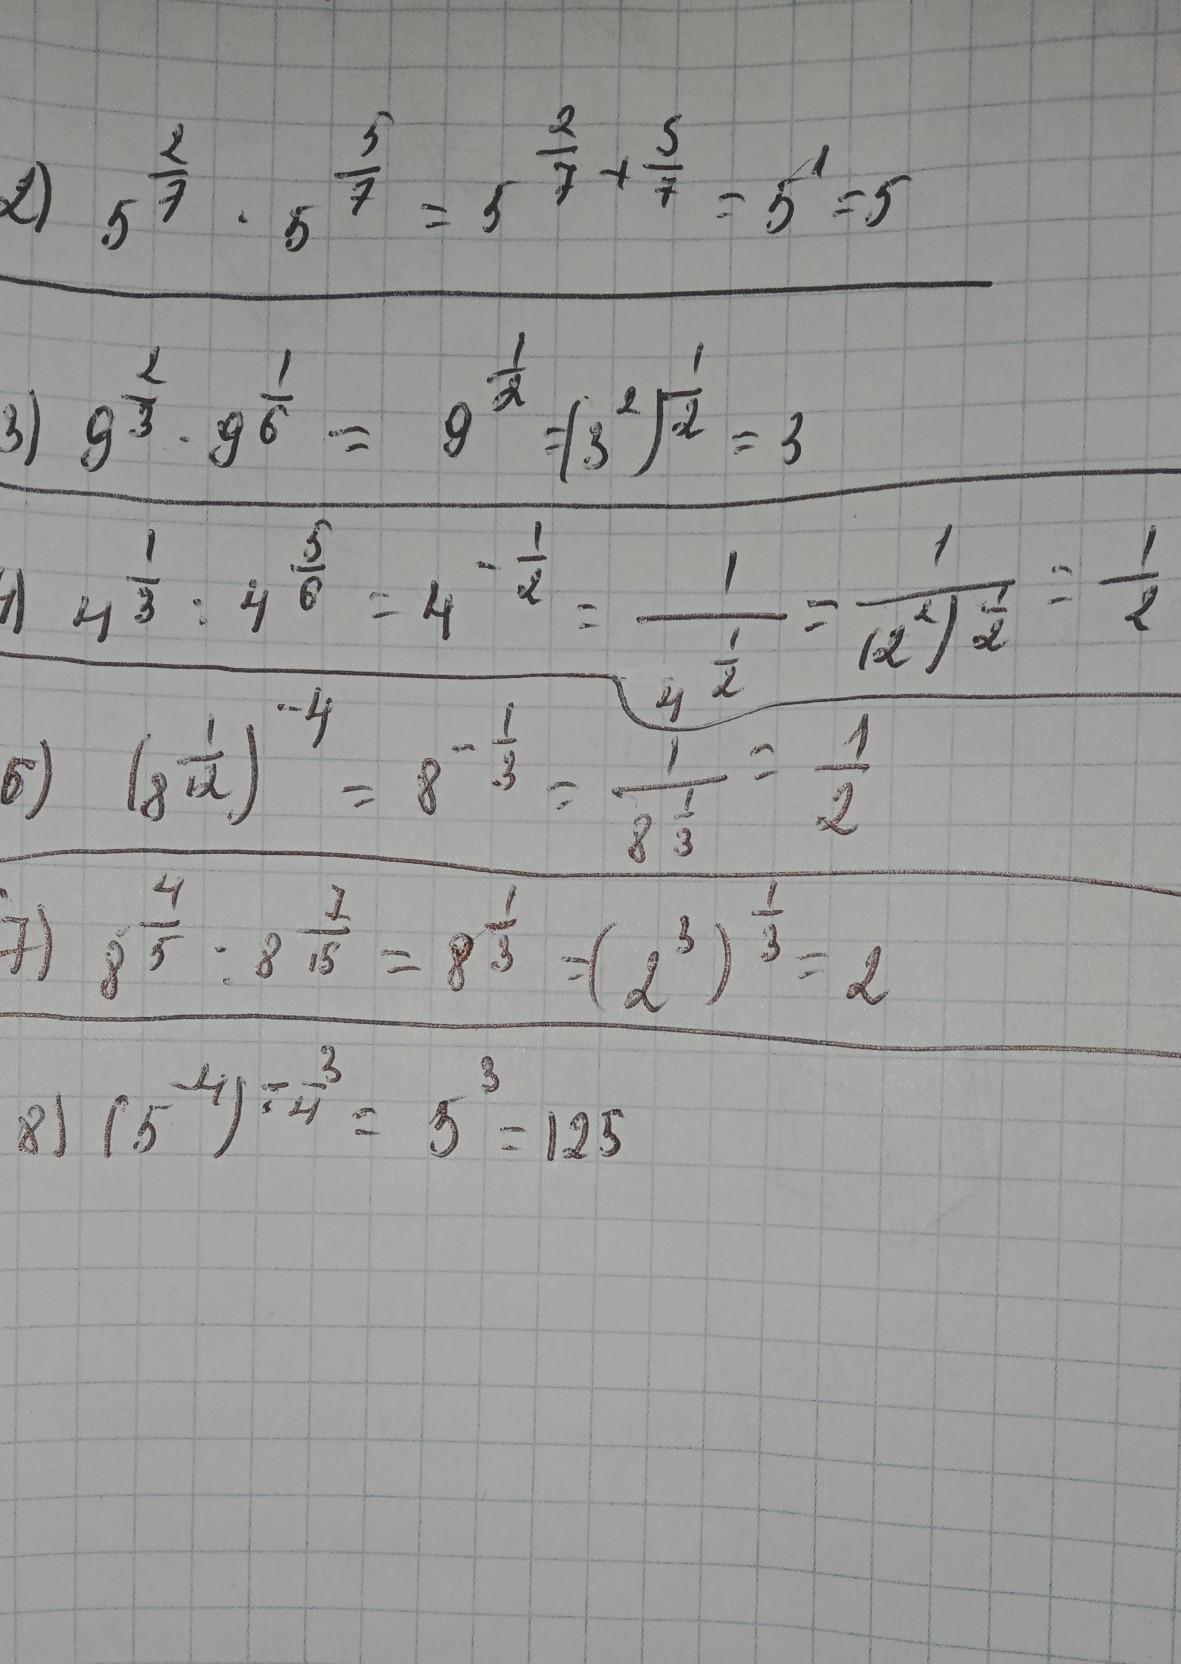 2) 5^{2/7} · 5^{5/7} = 5^{2/7 + 5/7} = 5^1 = 5
3) 9^{1/3} · 9^{1/6} = 9^{1/2} = (3^2)^{1/2} = 3
4) 4^{1/3} : 4^{5/6} = 4^{-1/2} = 1/4^{1/2} = 1/(2^2)^{1/2} = 1/2
6) (8^{1/12})^{-4} = 8^{-1/3} = 1/8^{1/3} = 1/2
7) 8^{4/5} : 8^{7/15} = 8^{1/3} = (2^3)^{1/3} = 2
8) (5^{-4})^{-3/4} = 5^3 = 125